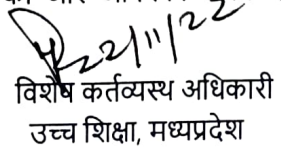 22/11/22
विशेष कर्तव्यस्थ अधिकारी
उच्च शिक्षा, मध्यप्रदेश